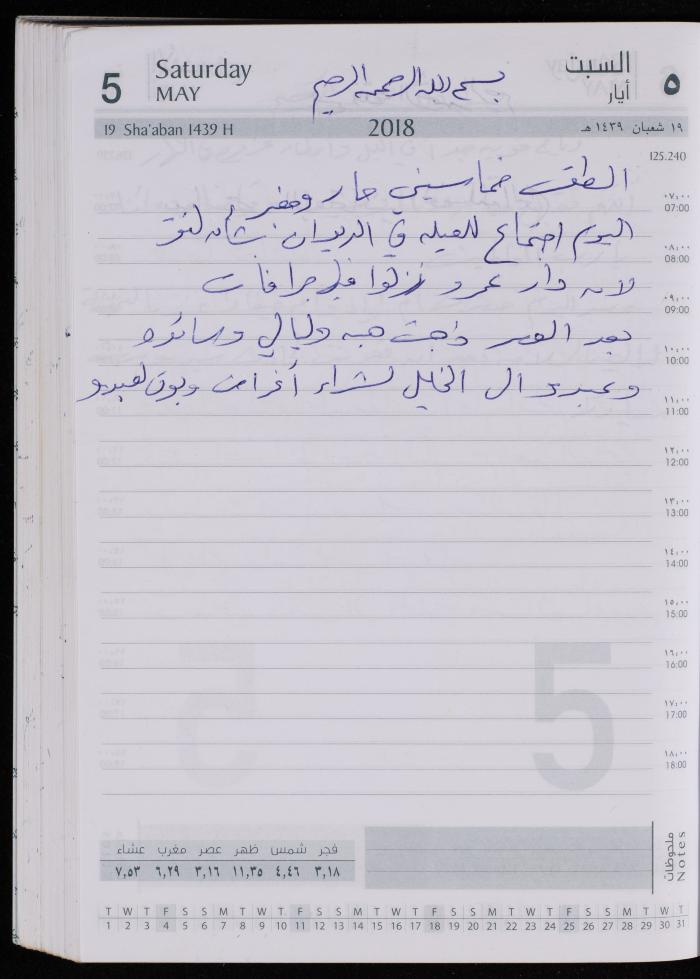 5 Saturday MAY
بسم الله الرحمن الرحيم
السبت ٥
أيار
19 Sha'aban 1439 H 2018 ١٩ شعبان ١٤٣٩ هـ
125.240
الطقس خماسيني حار ومغبر
اليوم اجتماع للعيله في الديوان بشأن
لانه دار عمرو نزلوا في جرافات
بعد العصر ذهبت هبه وليالي وسائده
وعبده ال الخليل لشراء أغراض
٠٧:٠٠
07:00
٠٨:٠٠
08:00
٠٩:٠٠
09:00
١٠:٠٠
10:00
١١:٠٠
11:00
١٢:٠٠
12:00
١٣:٠٠
13:00
١٤:٠٠
14:00
١٥:٠٠
15:00
١٦:٠٠
16:00
١٧:٠٠
17:00
١٨:٠٠
18:00
5
فجر شمس ظهر عصر مغرب عشاء
٣,١٨ ٤,٤٦ ١١,٣٥ ٣,١٦ ٦,٢٩ ٧,٥٣
ملحوظات
Notes
T W T F S S M T W T F S S M T W T F S S M T W T F S S M T W T
1 2 3 4 5 6 7 8 9 10 11 12 13 14 15 16 17 18 19 20 21 22 23 24 25 26 27 28 29 30 31